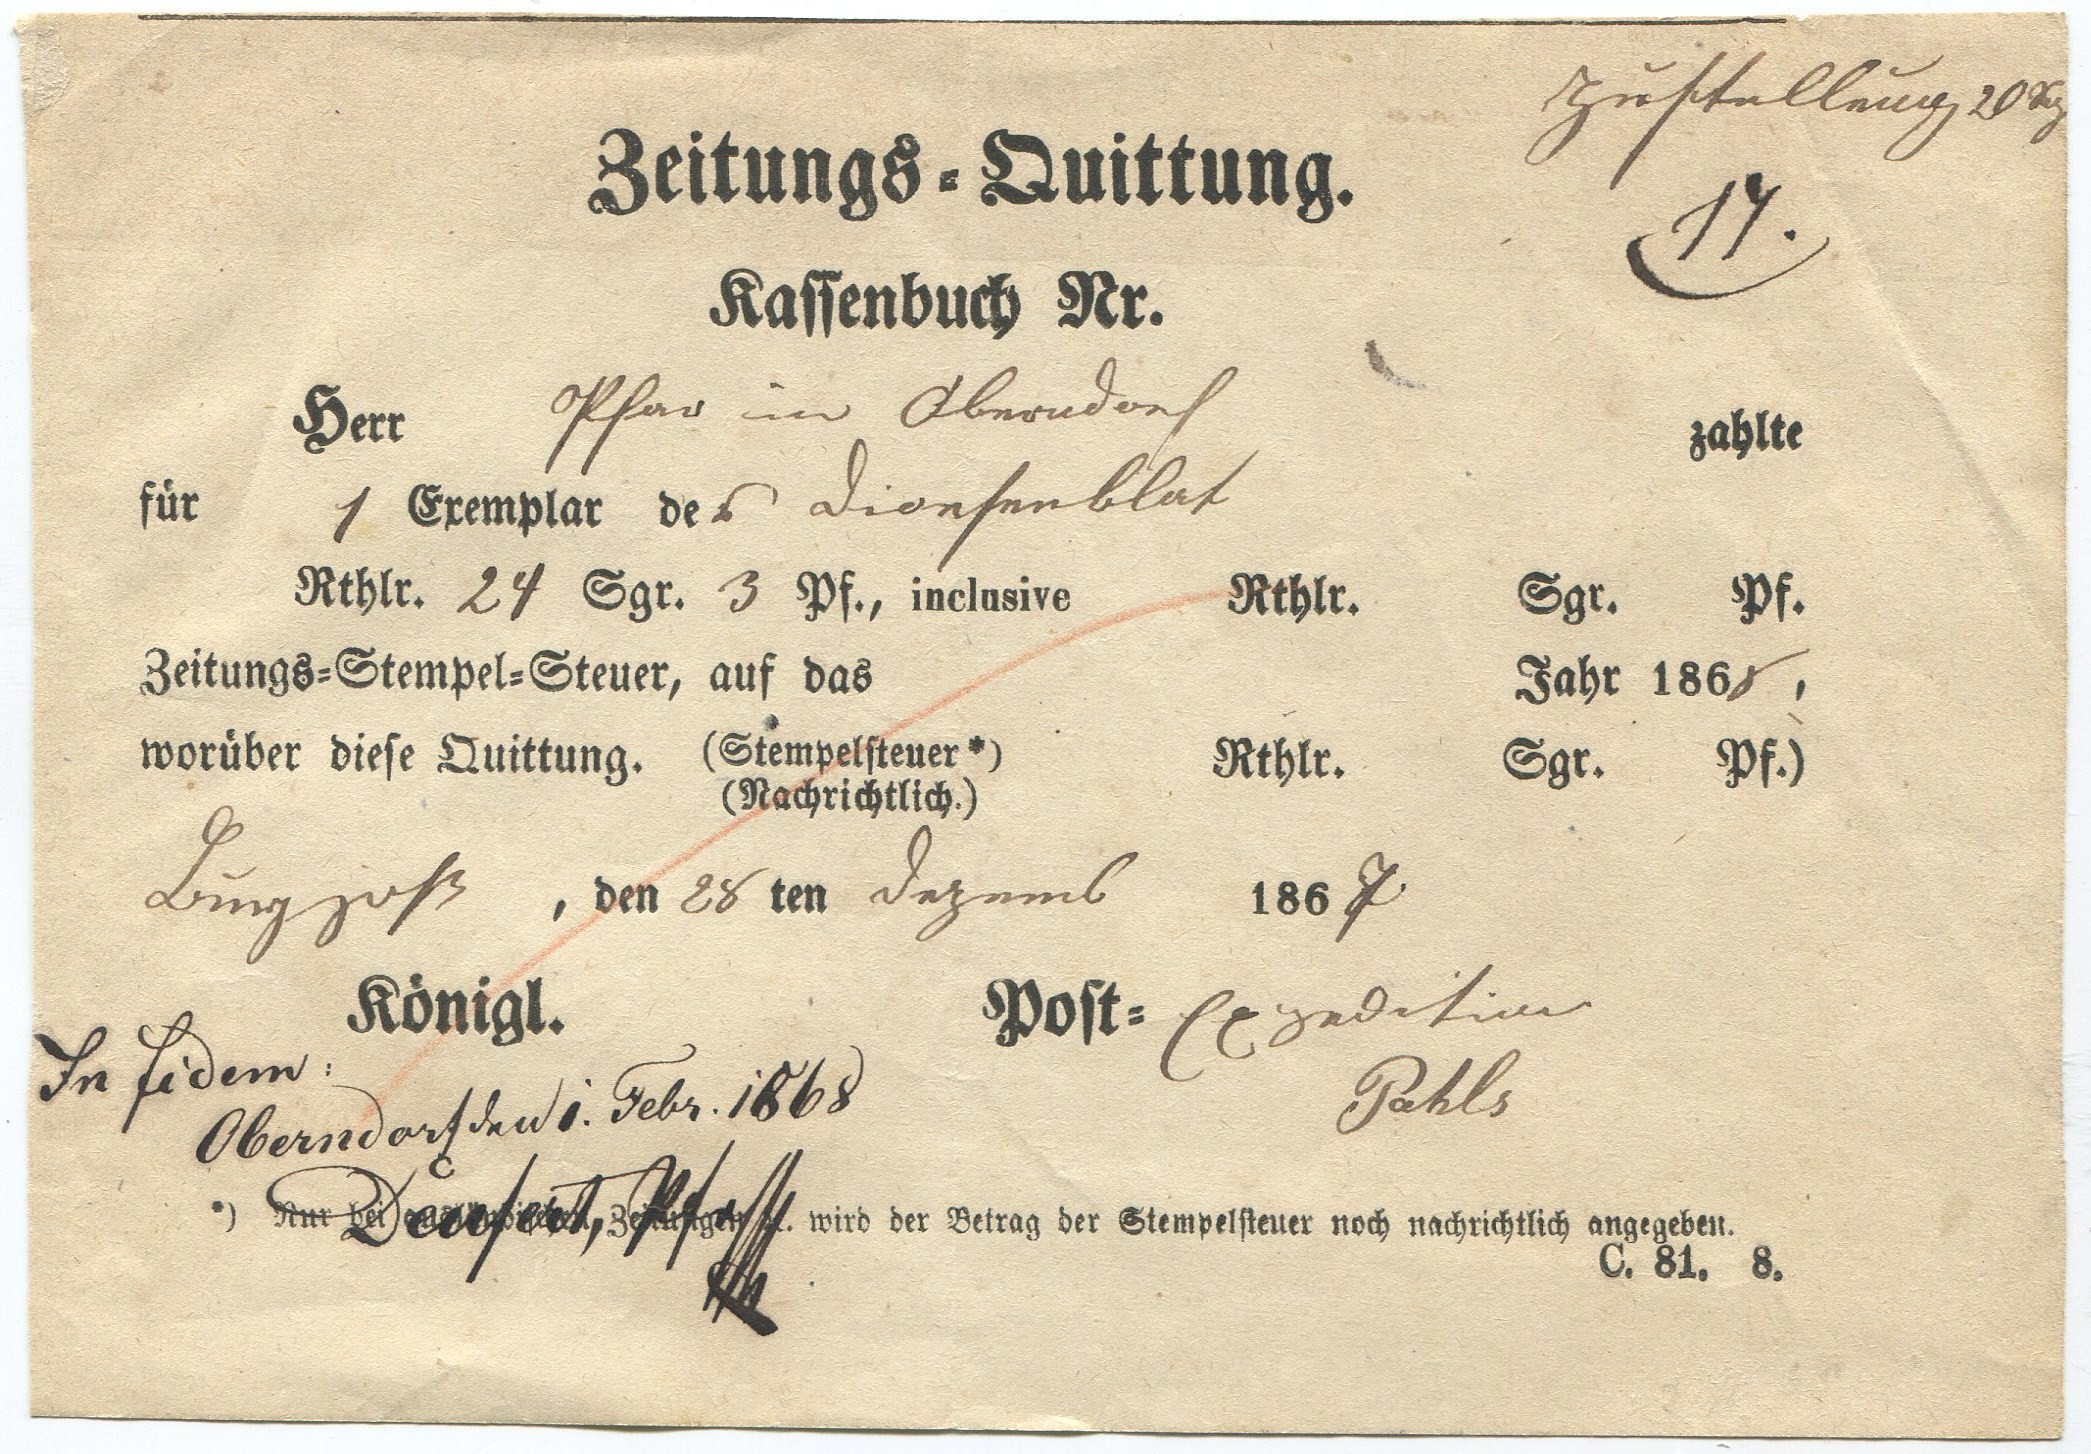 Zustellung 20 Sg
17.
Zeitungs-Quittung.
Kassenbuch Nr.
Herr Pfar in Oberndorf zahlte
für 1 Exemplar des Dioesenblat
Rthlr. 24 Sgr. 3 Pf., inclusive Rthlr. Sgr. Pf.
Zeitungs-Stempel-Steuer, auf das Jahr 1868,
worüber diese Quittung. (Stempelsteuer*) Rthlr. Sgr. Pf.)
(Nachrichtlich.)
Burgjoß, den 28 ten Dezemb 1867
Königl. Post-Expedition
In fidem:
Pahls
Oberndorf den 1. Febr. 1868
*) Nur bei Zeitungen wird der Betrag der Stempelsteuer noch nachrichtlich angegeben.
C. 81. 8.